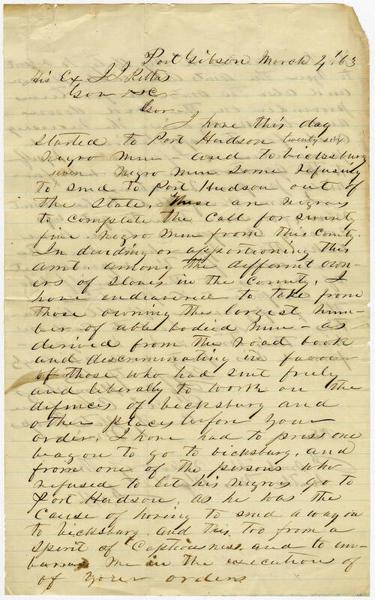 Port Gibson March 4, '63
His Ex J J Pettus
Gov &c
Gov
I have this day
started to Port Hudson twenty six
Negro Men and to Vicksburg
seven Negro Men some refusing
to send to Port Hudson out of
the State, These are negros
to complete the Call for seventy
five Negro Men from this County.
In dividing or apportioning this
amt among the different own-
ers of Slaves in the County, I
have endeavored to take from
those owning the largest num-
ber of able bodied men - as
derived from the road book
and discriminating in favour
of those who had sent freely
and liberally to work on the
defences of Vicksburg and
other places before your
order, I have had to press one
wagon to go to Vicksburg, and
from one of the persons who
refused to let his negros go to
Port Hudson, as he was the
Cause of having to send a wagon
to Vicksburg, and this too from a
spirit of Captiousness and to em-
barrass me in the execution of
of your orders